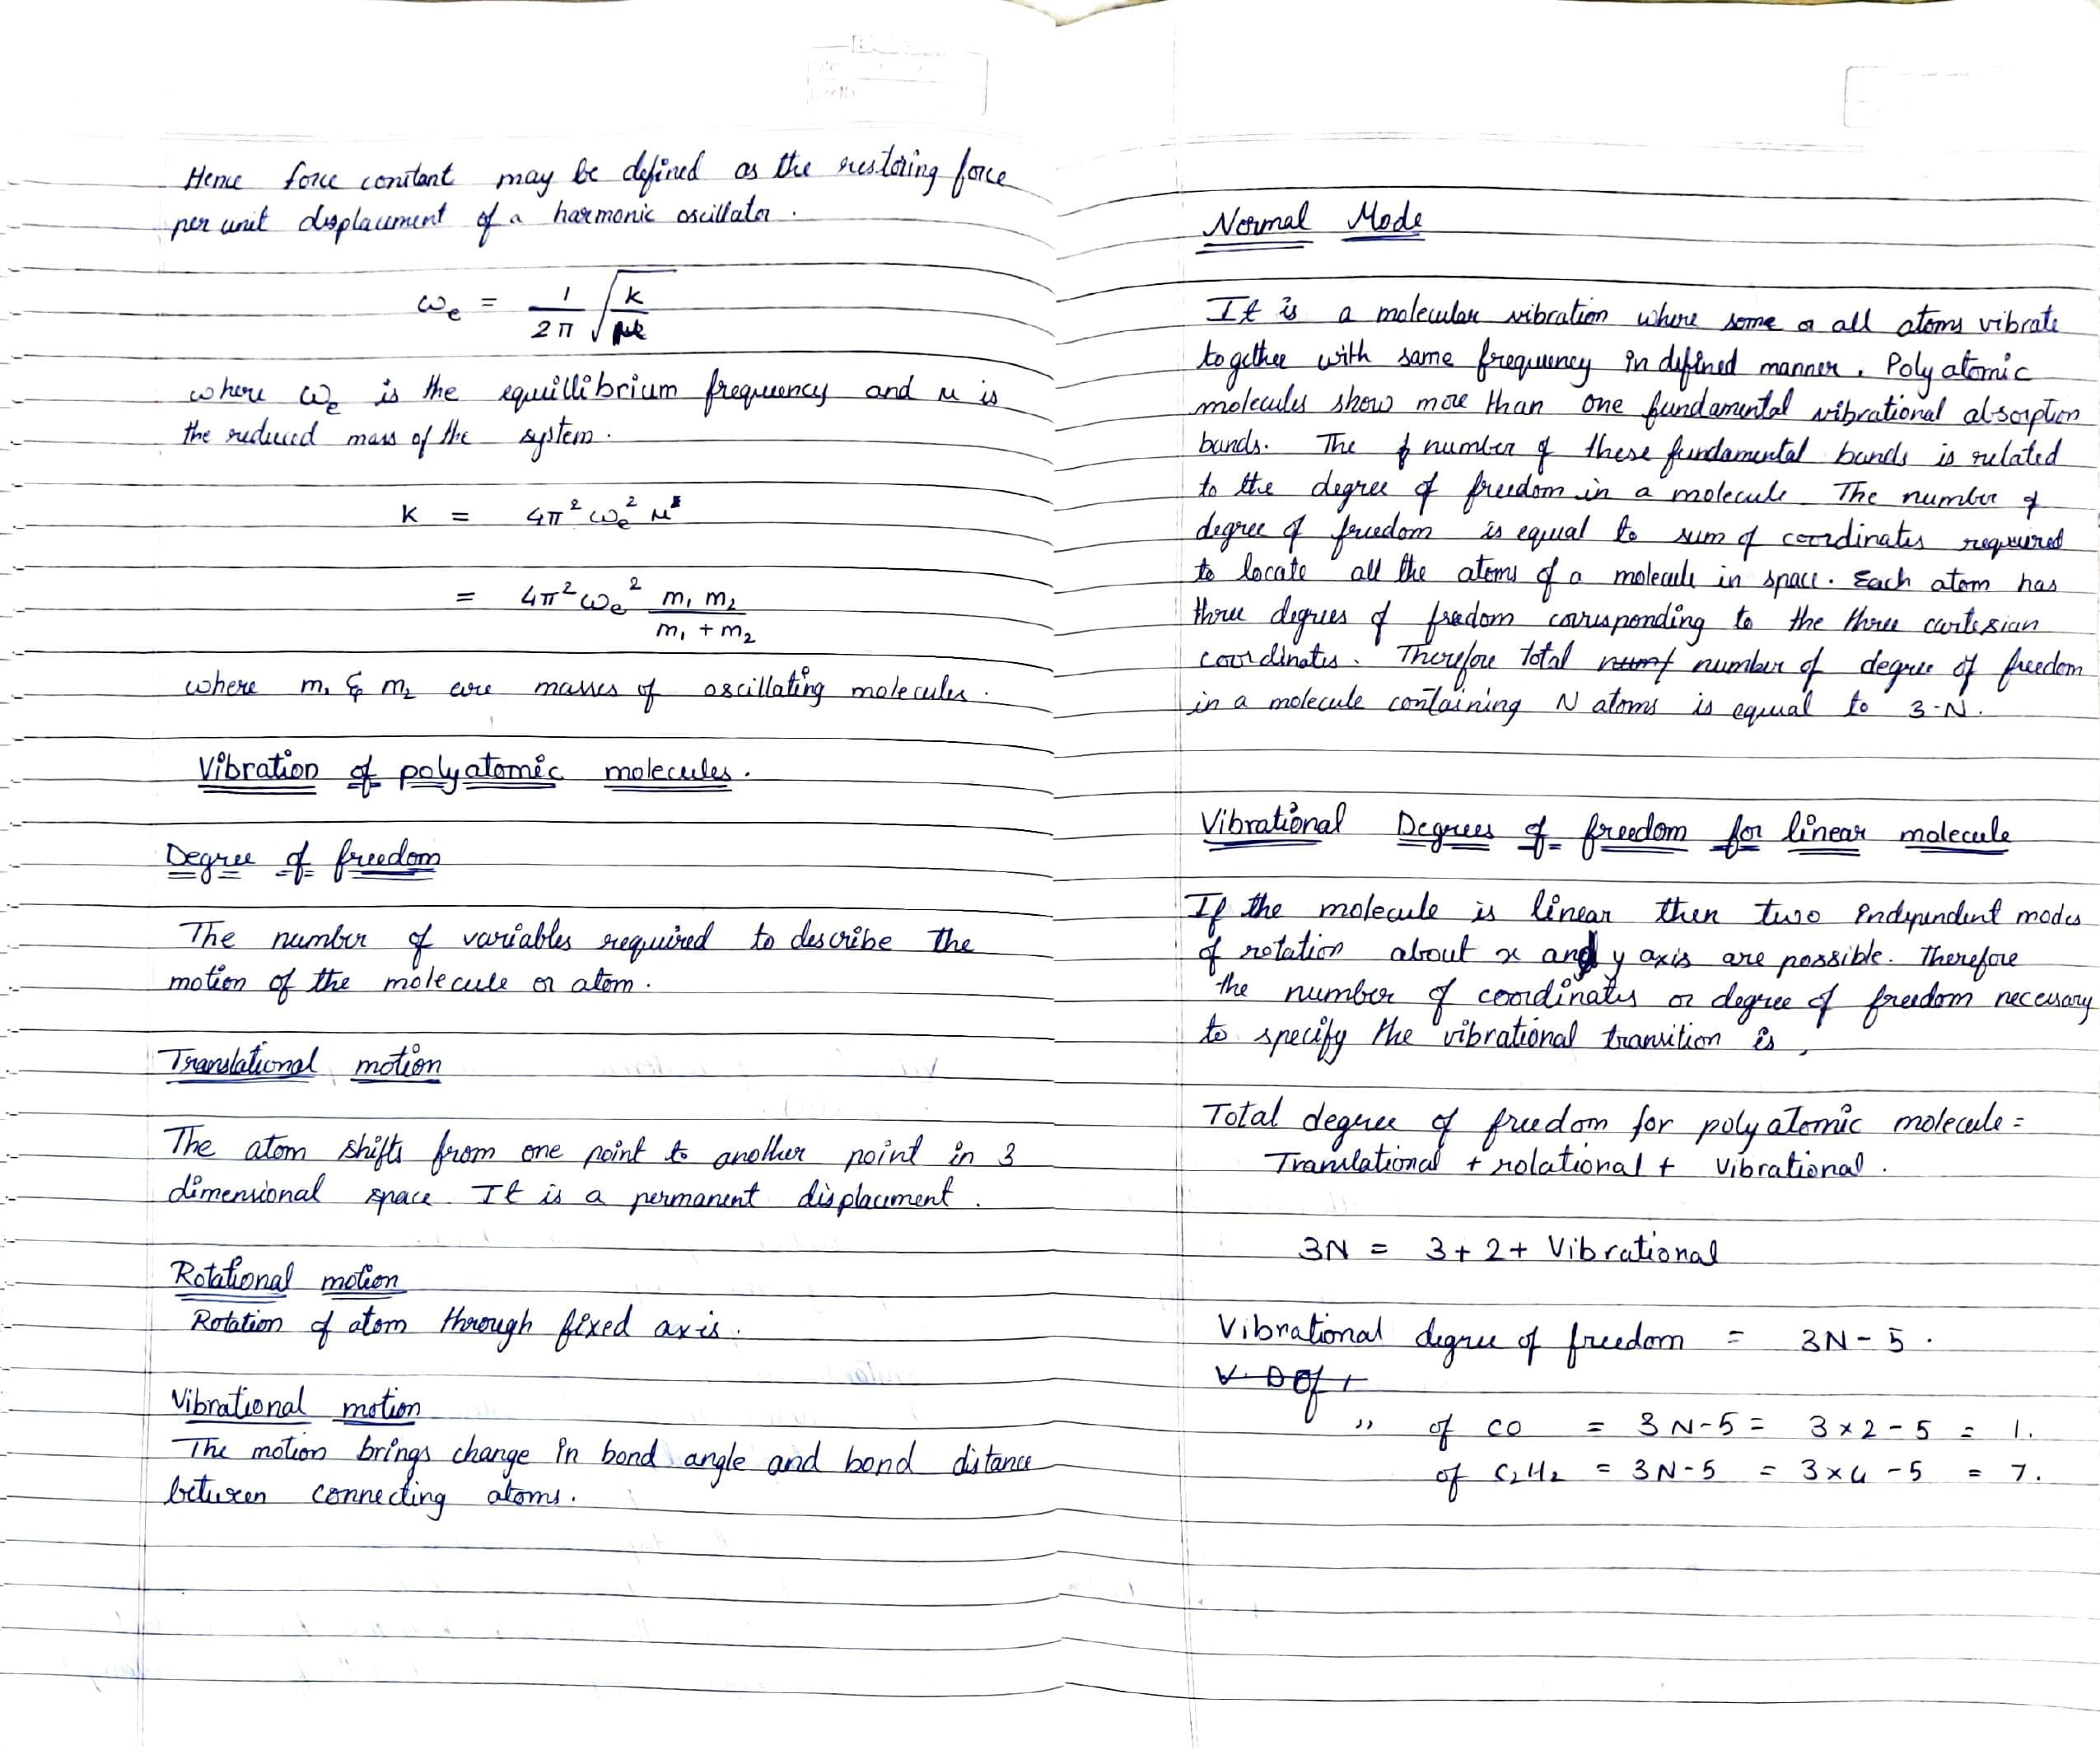 Hence force constant may be defined as the restoring force
per unit displacement of a harmonic oscillator.
ωe = 1/2π √k/μ
where ωe is the equillibrium frequency and μ is
the reduced mass of the system.
K = 4π² ωe² μ
= 4π² ωe² m₁ m₂ / m₁ + m₂
where m₁ & m₂ are masses of oscillating molecules.
Vibration of polyatomic molecules.
Degree of freedom
The number of variables required to describe the
motion of the molecule or atom.
Translational motion
The atom shifts from one point to another point in 3
dimensional space. It is a permanent displacement.
Rotational motion
Rotation of atom through fixed axis.
Vibrational motion
The motion brings change in bond angle and bond distance
between connecting atoms.
Normal Mode
It is a molecular vibration where some or all atoms vibrate
together with same frequency in defined manner. Polyatomic
molecules show more than one fundamental vibrational absorption
bands. The number of these fundamental bands is related
to the degree of freedom in a molecule. The number of
degree of freedom is equal to sum of coordinates required
to locate all the atoms of a molecule in space. Each atom has
three degrees of freedom corresponding to the three cartesian
coordinates. Therefore total number of degree of freedom
in a molecule containing N atoms is equal to 3-N.
Vibrational Degrees of freedom for linear molecule
If the molecule is linear then two independent modes
of rotation about x and y axis are possible. Therefore
the number of coordinates or degree of freedom necessary
to specify the vibrational transition is,
Total degree of freedom for polyatomic molecule =
Translational + rotational + Vibrational.
3N = 3+2+ Vibrational
Vibrational degree of freedom = 3N-5.
V. DOf
" of CO = 3N-5 = 3×2-5 = 1.
of C₂H₂ = 3N-5 = 3×4-5 = 7.